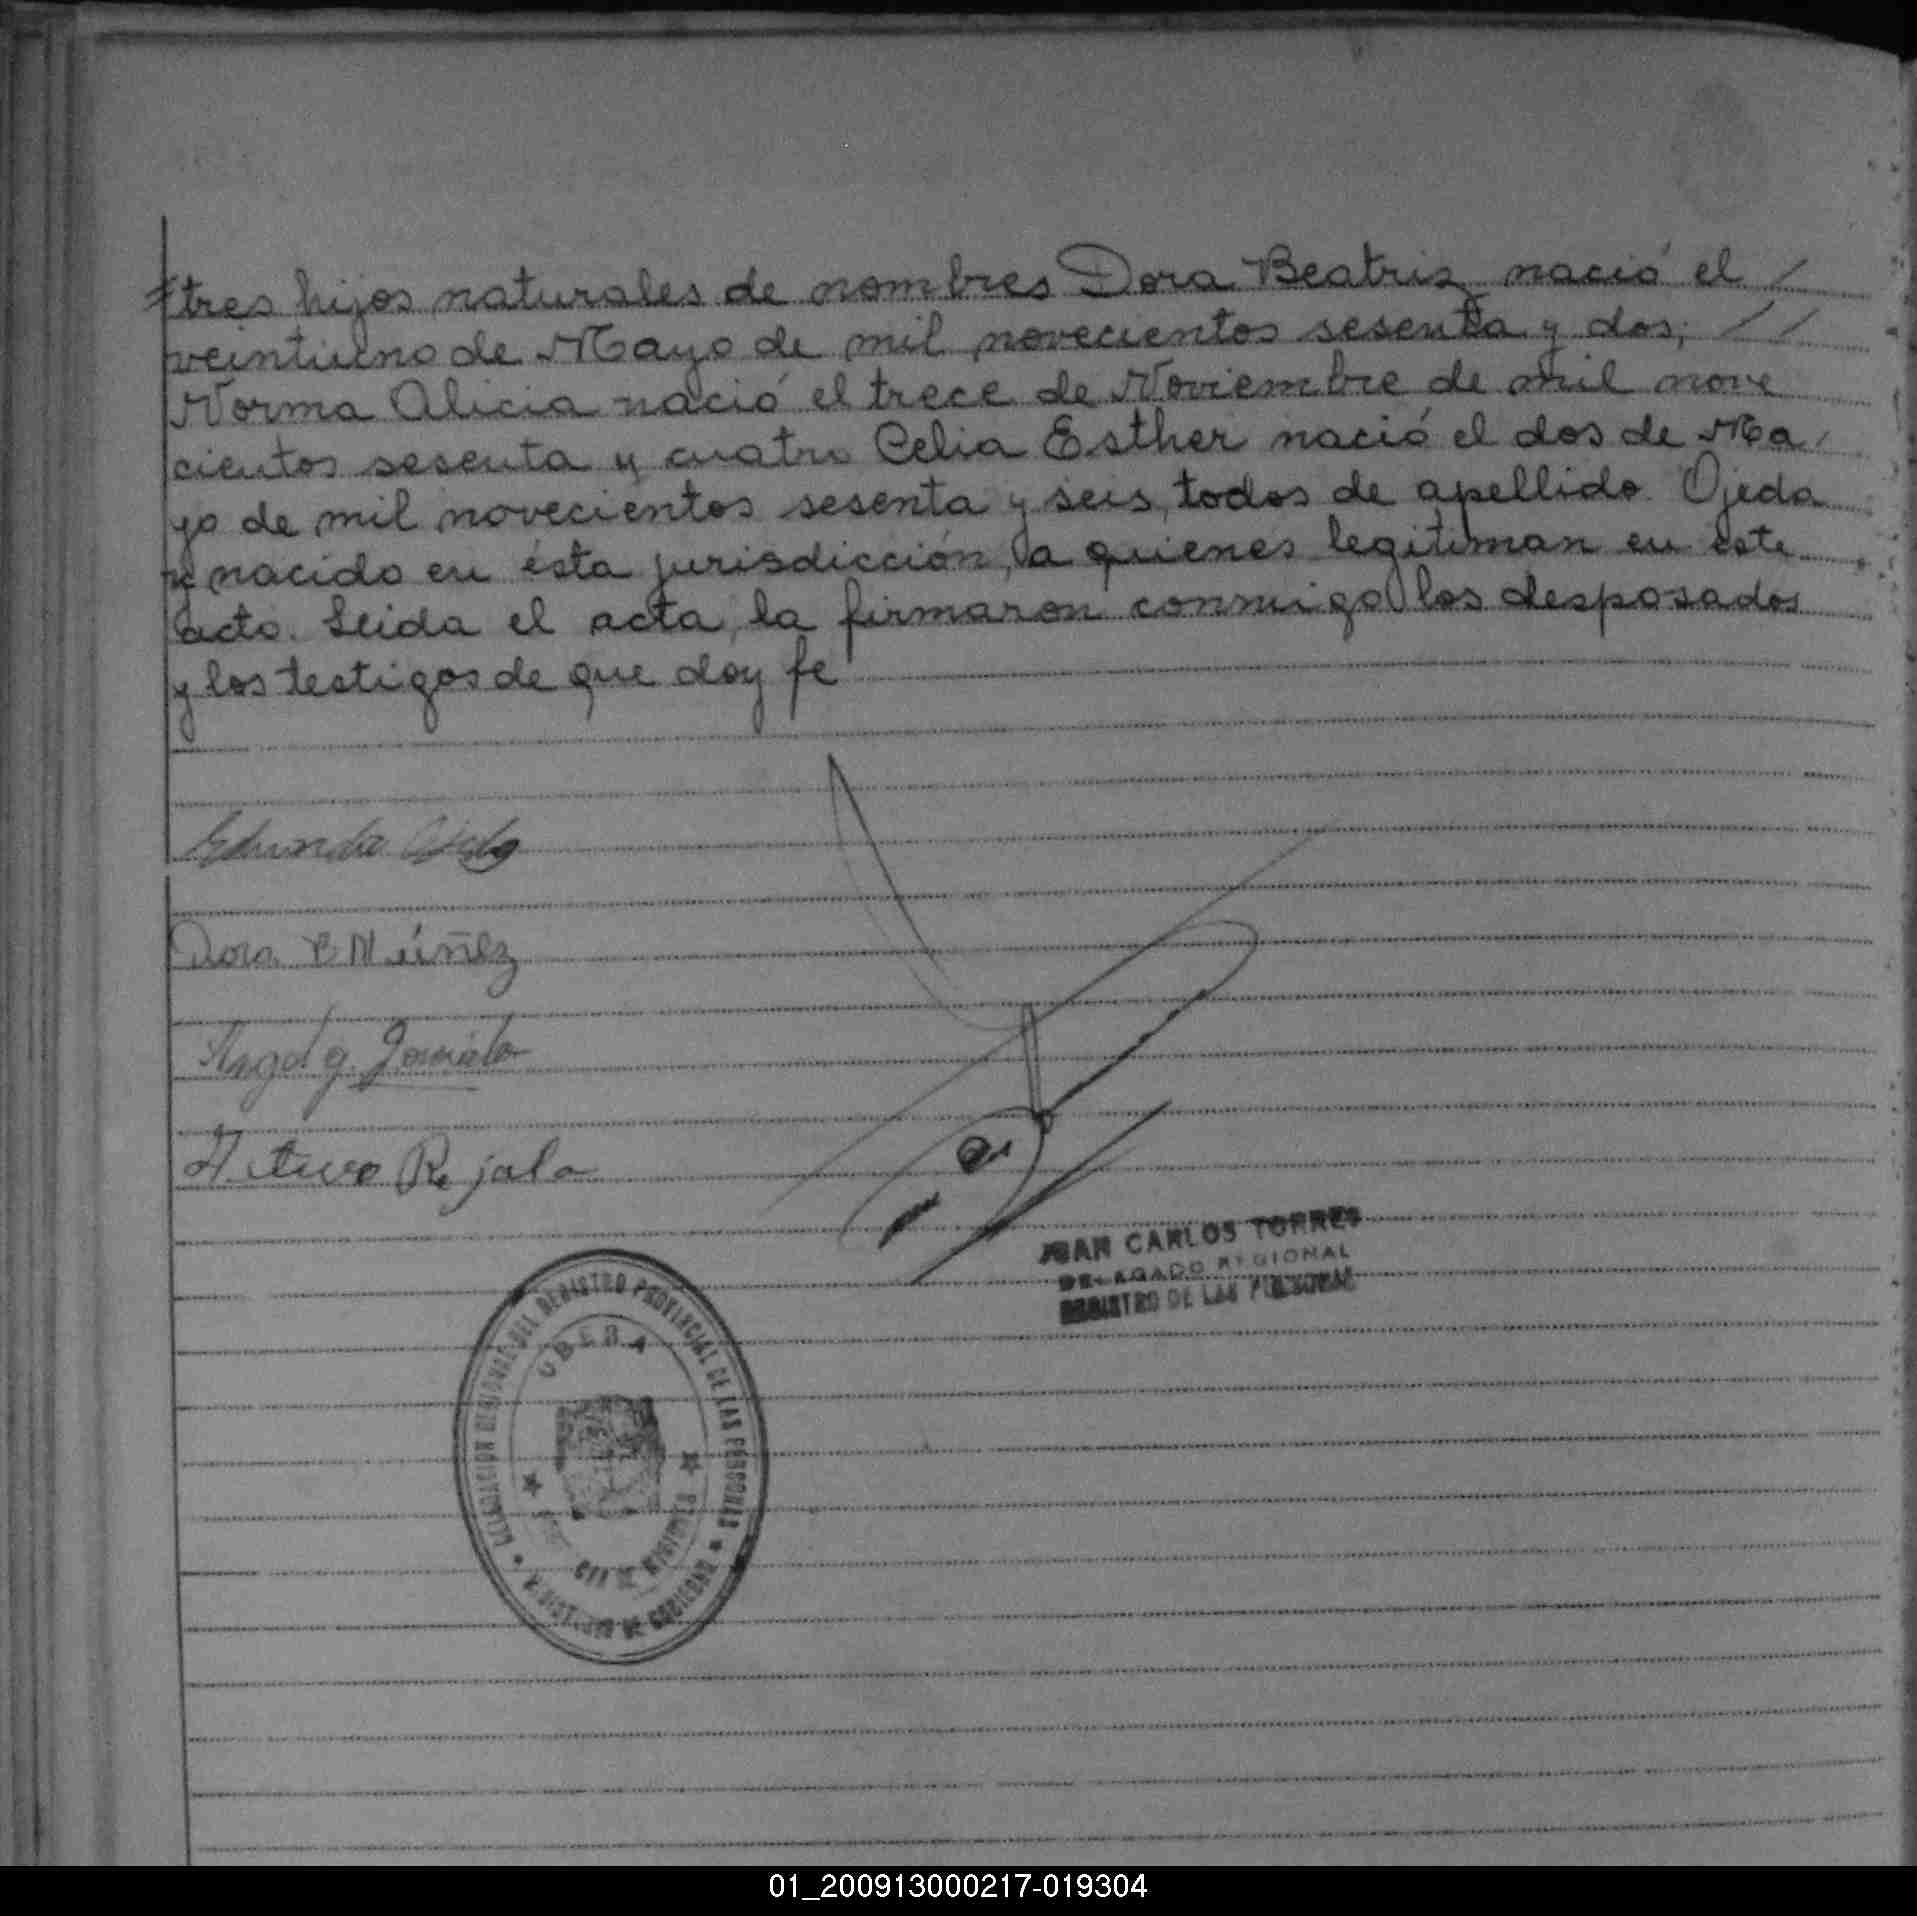 tres hijos naturales de nombres Dora Beatriz nació el //
veintiuno de Mayo de mil novecientos sesenta y dos; //
Norma Alicia nació el trece de Noviembre de mil nove
cientos sesenta y cuatro Celia Esther nació el dos de Ma
yo de mil novecientos sesenta y seis, todos de apellido Ojeda
y nacido en ésta jurisdicción, a quienes legitiman en este
acto. Leida el acta, la firmaron conmigo los desposados
y los testigos de que doy fe
Dora E Núñez
Angel g.
JUAN CARLOS TORRES
DELEGADO REGIONAL
REGISTRO DE LAS PERSONAS
DELEGACION REGIONAL DEL REGISTRO PROVINCIAL DE LAS PERSONAS
OBERA
DE MISIONES
MINISTERIO DE GOBIERNO
01_200913000217-019304